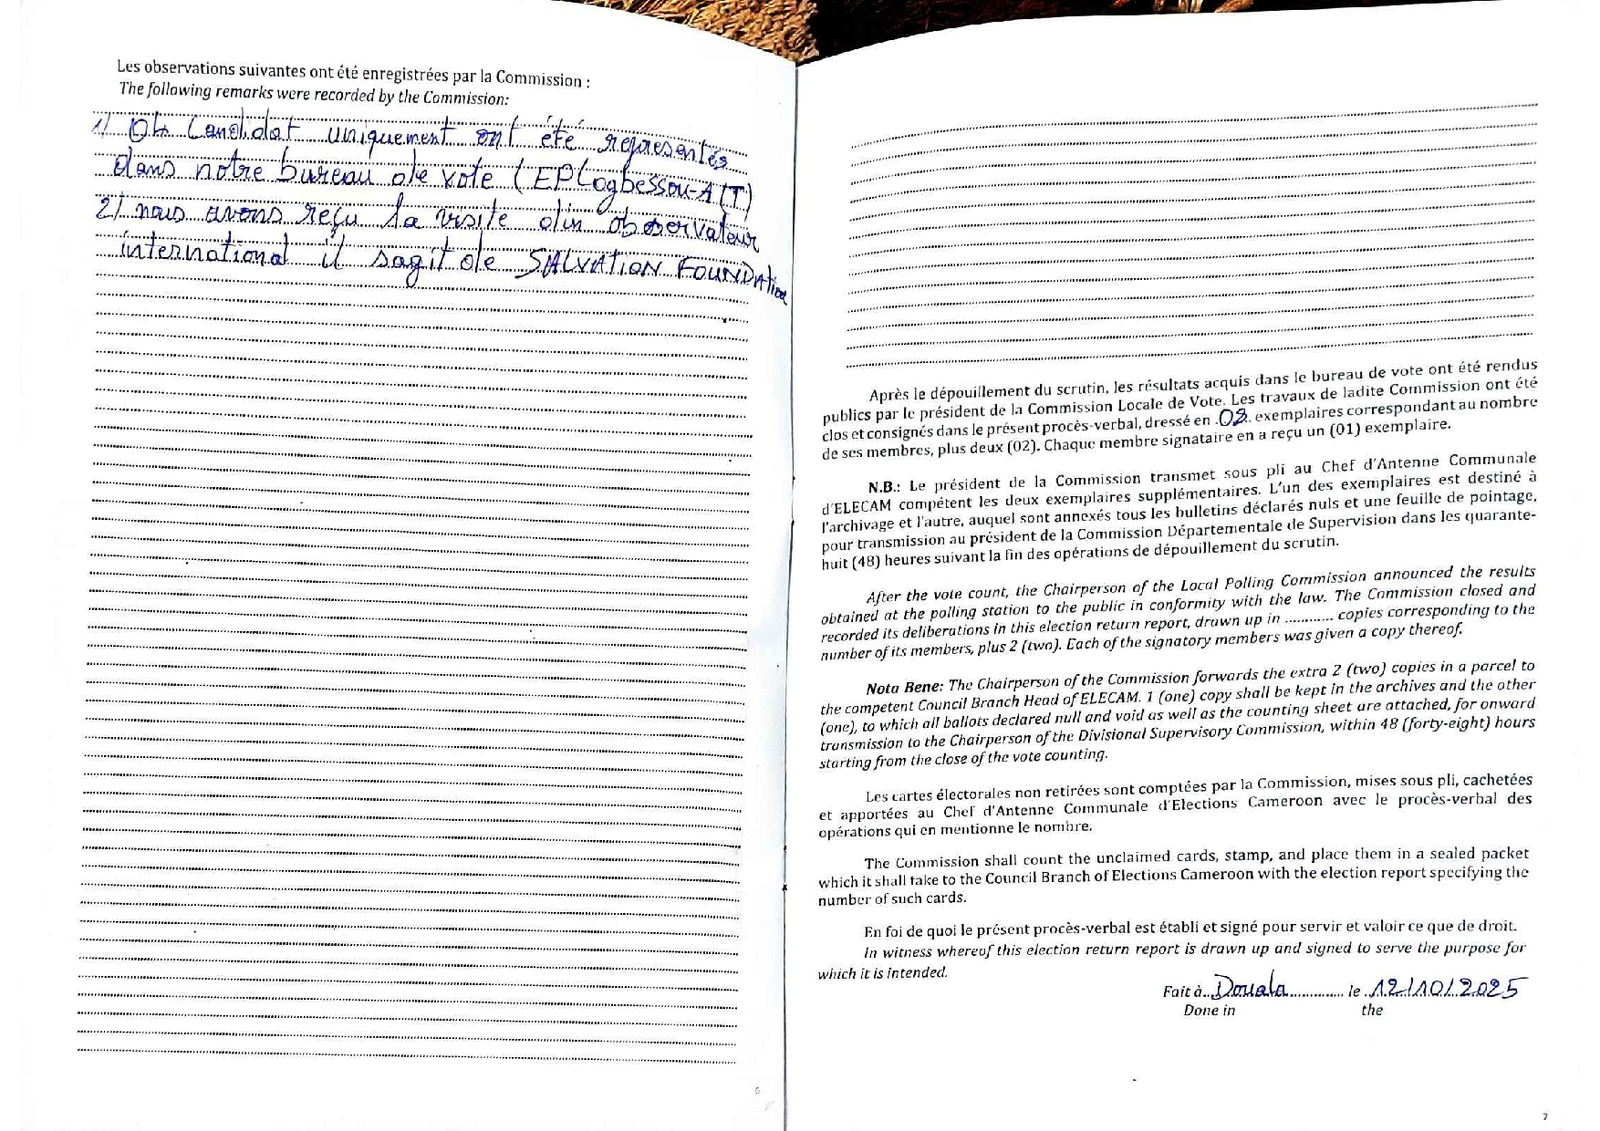 Les observations suivantes ont été enregistrées par la Commission :
The following remarks were recorded by the Commission:
1) 04 Candidat uniquement ont été représentés
dans notre bureau de vote (EPLogbessou-A(T)
2) nous avons reçu la visite d'in observateur
international il sagit de SALVATION FOUNDAtion
6
Après le dépouillement du scrutin, les résultats acquis dans le bureau de vote ont été rendus
publics par le président de la Commission Locale de Vote. Les travaux de ladite Commission ont été
clos et consignés dans le présent procès-verbal, dressé en .02. exemplaires correspondant au nombre
de ses membres, plus deux (02). Chaque membre signataire en a reçu un (01) exemplaire.
N.B.: Le président de la Commission transmet sous pli au Chef d'Antenne Communale
d'ELECAM compétent les deux exemplaires supplémentaires. L'un des exemplaires est destiné à
l'archivage et l'autre, auquel sont annexés tous les bulletins déclarés nuls et une feuille de pointage,
pour transmission au président de la Commission Départementale de Supervision dans les quarante-
huit (48) heures suivant la fin des opérations de dépouillement du scrutin.
After the vote count, the Chairperson of the Local Polling Commission announced the results
obtained at the polling station to the public in conformity with the law. The Commission closed and
recorded its deliberations in this election return report, drawn up in ............ copies corresponding to the
number of its members, plus 2 (two). Each of the signatory members was given a copy thereof.
Nota Bene: The Chairperson of the Commission forwards the extra 2 (two) copies in a parcel to
the competent Council Branch Head of ELECAM. 1 (one) copy shall be kept in the archives and the other
(one), to which all ballots declared null and void as well as the counting sheet are attached, for onward
transmission to the Chairperson of the Divisional Supervisory Commission, within 48 (forty-eight) hours
starting from the close of the vote counting.
Les cartes électorales non retirées sont comptées par la Commission, mises sous pli, cachetées
et apportées au Chef d'Antenne Communale d'Elections Cameroon avec le procès-verbal des
opérations qui en mentionne le nombre.
The Commission shall count the unclaimed cards, stamp, and place them in a sealed packet
which it shall take to the Council Branch of Elections Cameroon with the election report specifying the
number of such cards.
En foi de quoi le présent procès-verbal est établi et signé pour servir et valoir ce que de droit.
In witness whereof this election return report is drawn up and signed to serve the purpose for
which it is intended.
Fait à..Douala............. le .12/10/2025
Done in the
7